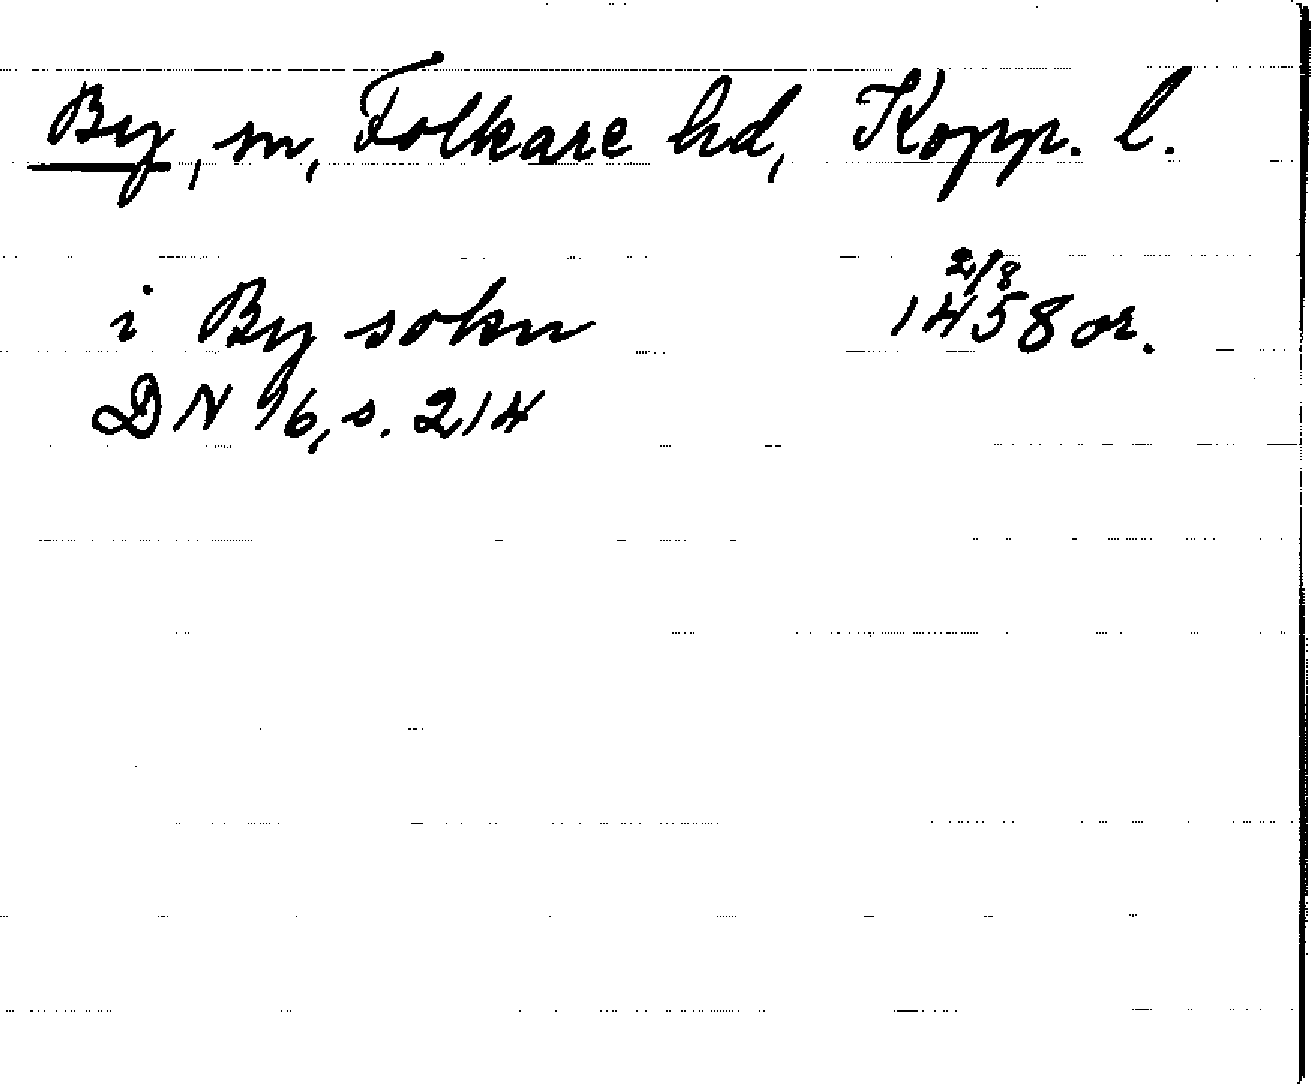 By, sn, Folkare hd, Kopp. l.
i By sokn 1458 2/8 or.
DN 16, s. 214